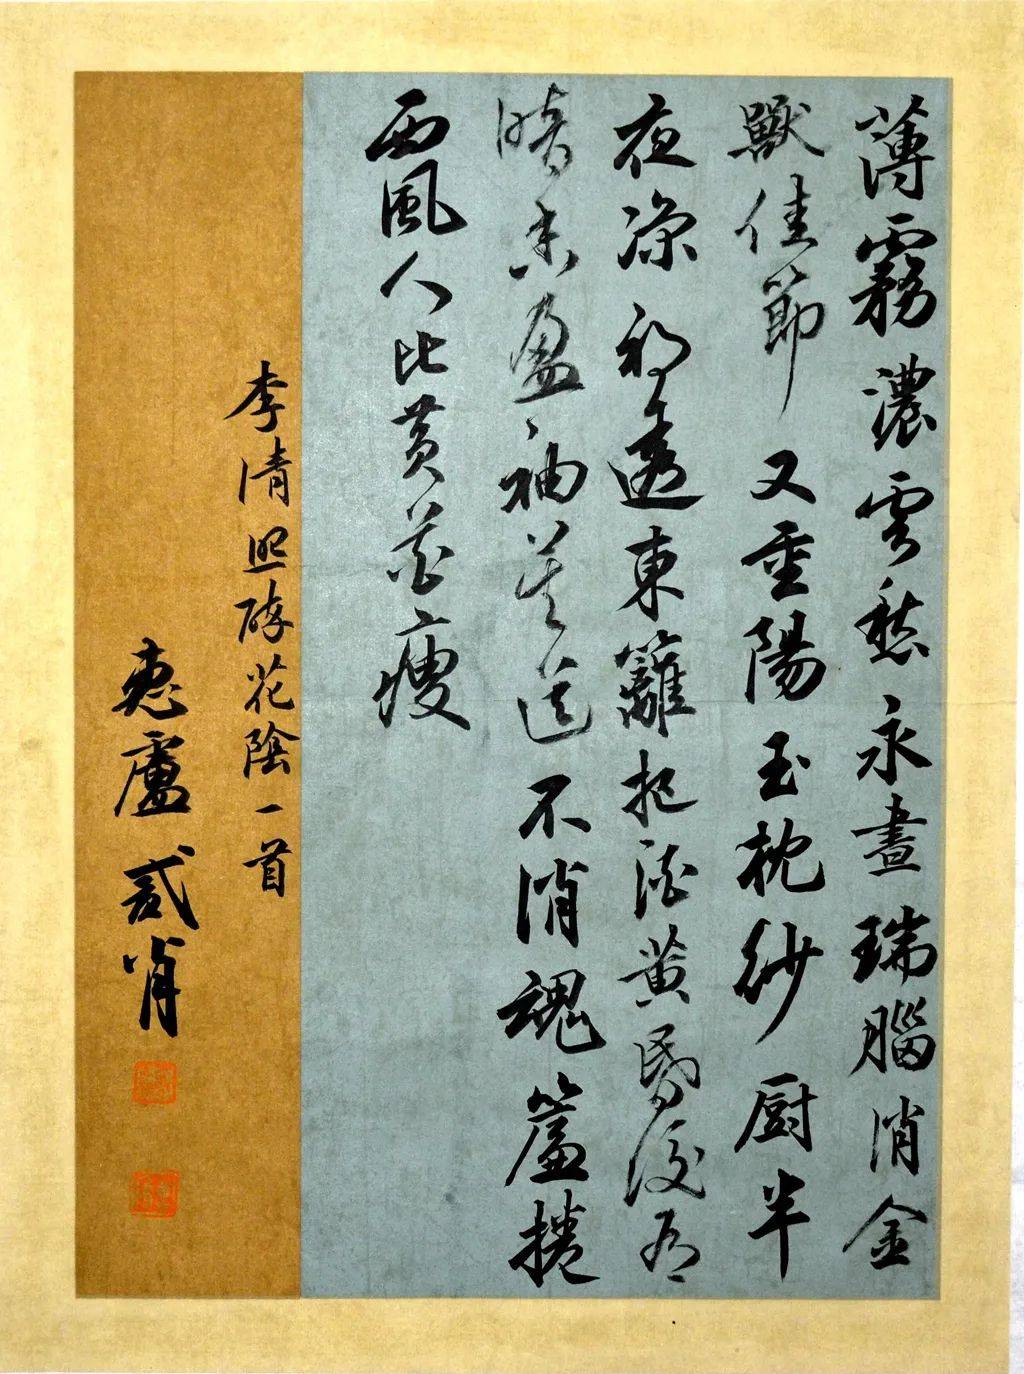 薄霧濃雲愁永晝瑞腦消金
獸佳節又重陽玉枕紗厨半
夜涼初透東籬把酒黄昏後有
暗香盈袖莫道不消魂簾捲
西風人比黄花瘦
李清照醉花陰一首
惠盧貳肖